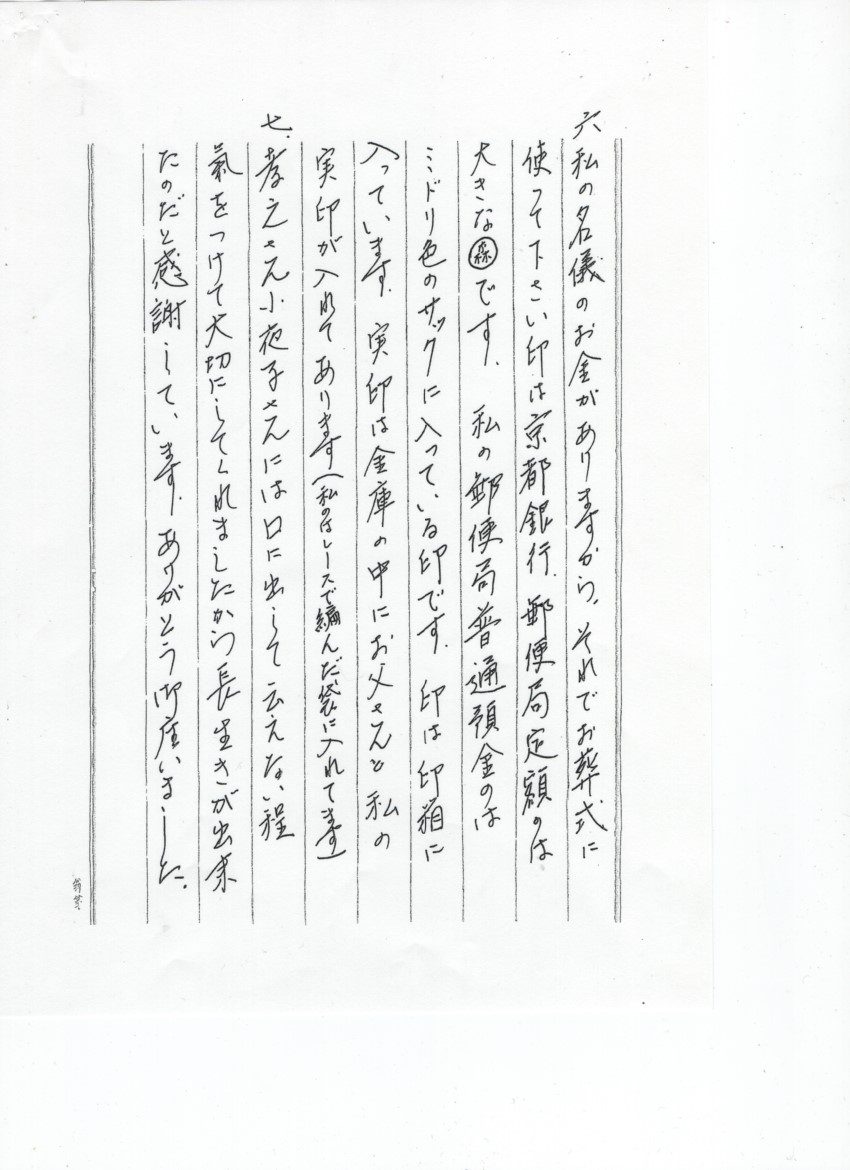 六 私の名儀のお金がありますから、それでお葬式に
使って下さい印は京都銀行、郵便局定額のは
大きな㊞森です。 私の郵便局普通預金のは
ミドリ色のサックに入っている印です。印は印箱に
入っています。 実印は金庫の中にお父さんと私の
実印が入れてあります(私のはレースで編んだ袋に入れてます)
七、孝之さん小夜子さんには口に出して云えない程
氣をつけて大切にしてくれましたから長生きが出来
たのだと感謝しています。ありがとう御座いました。